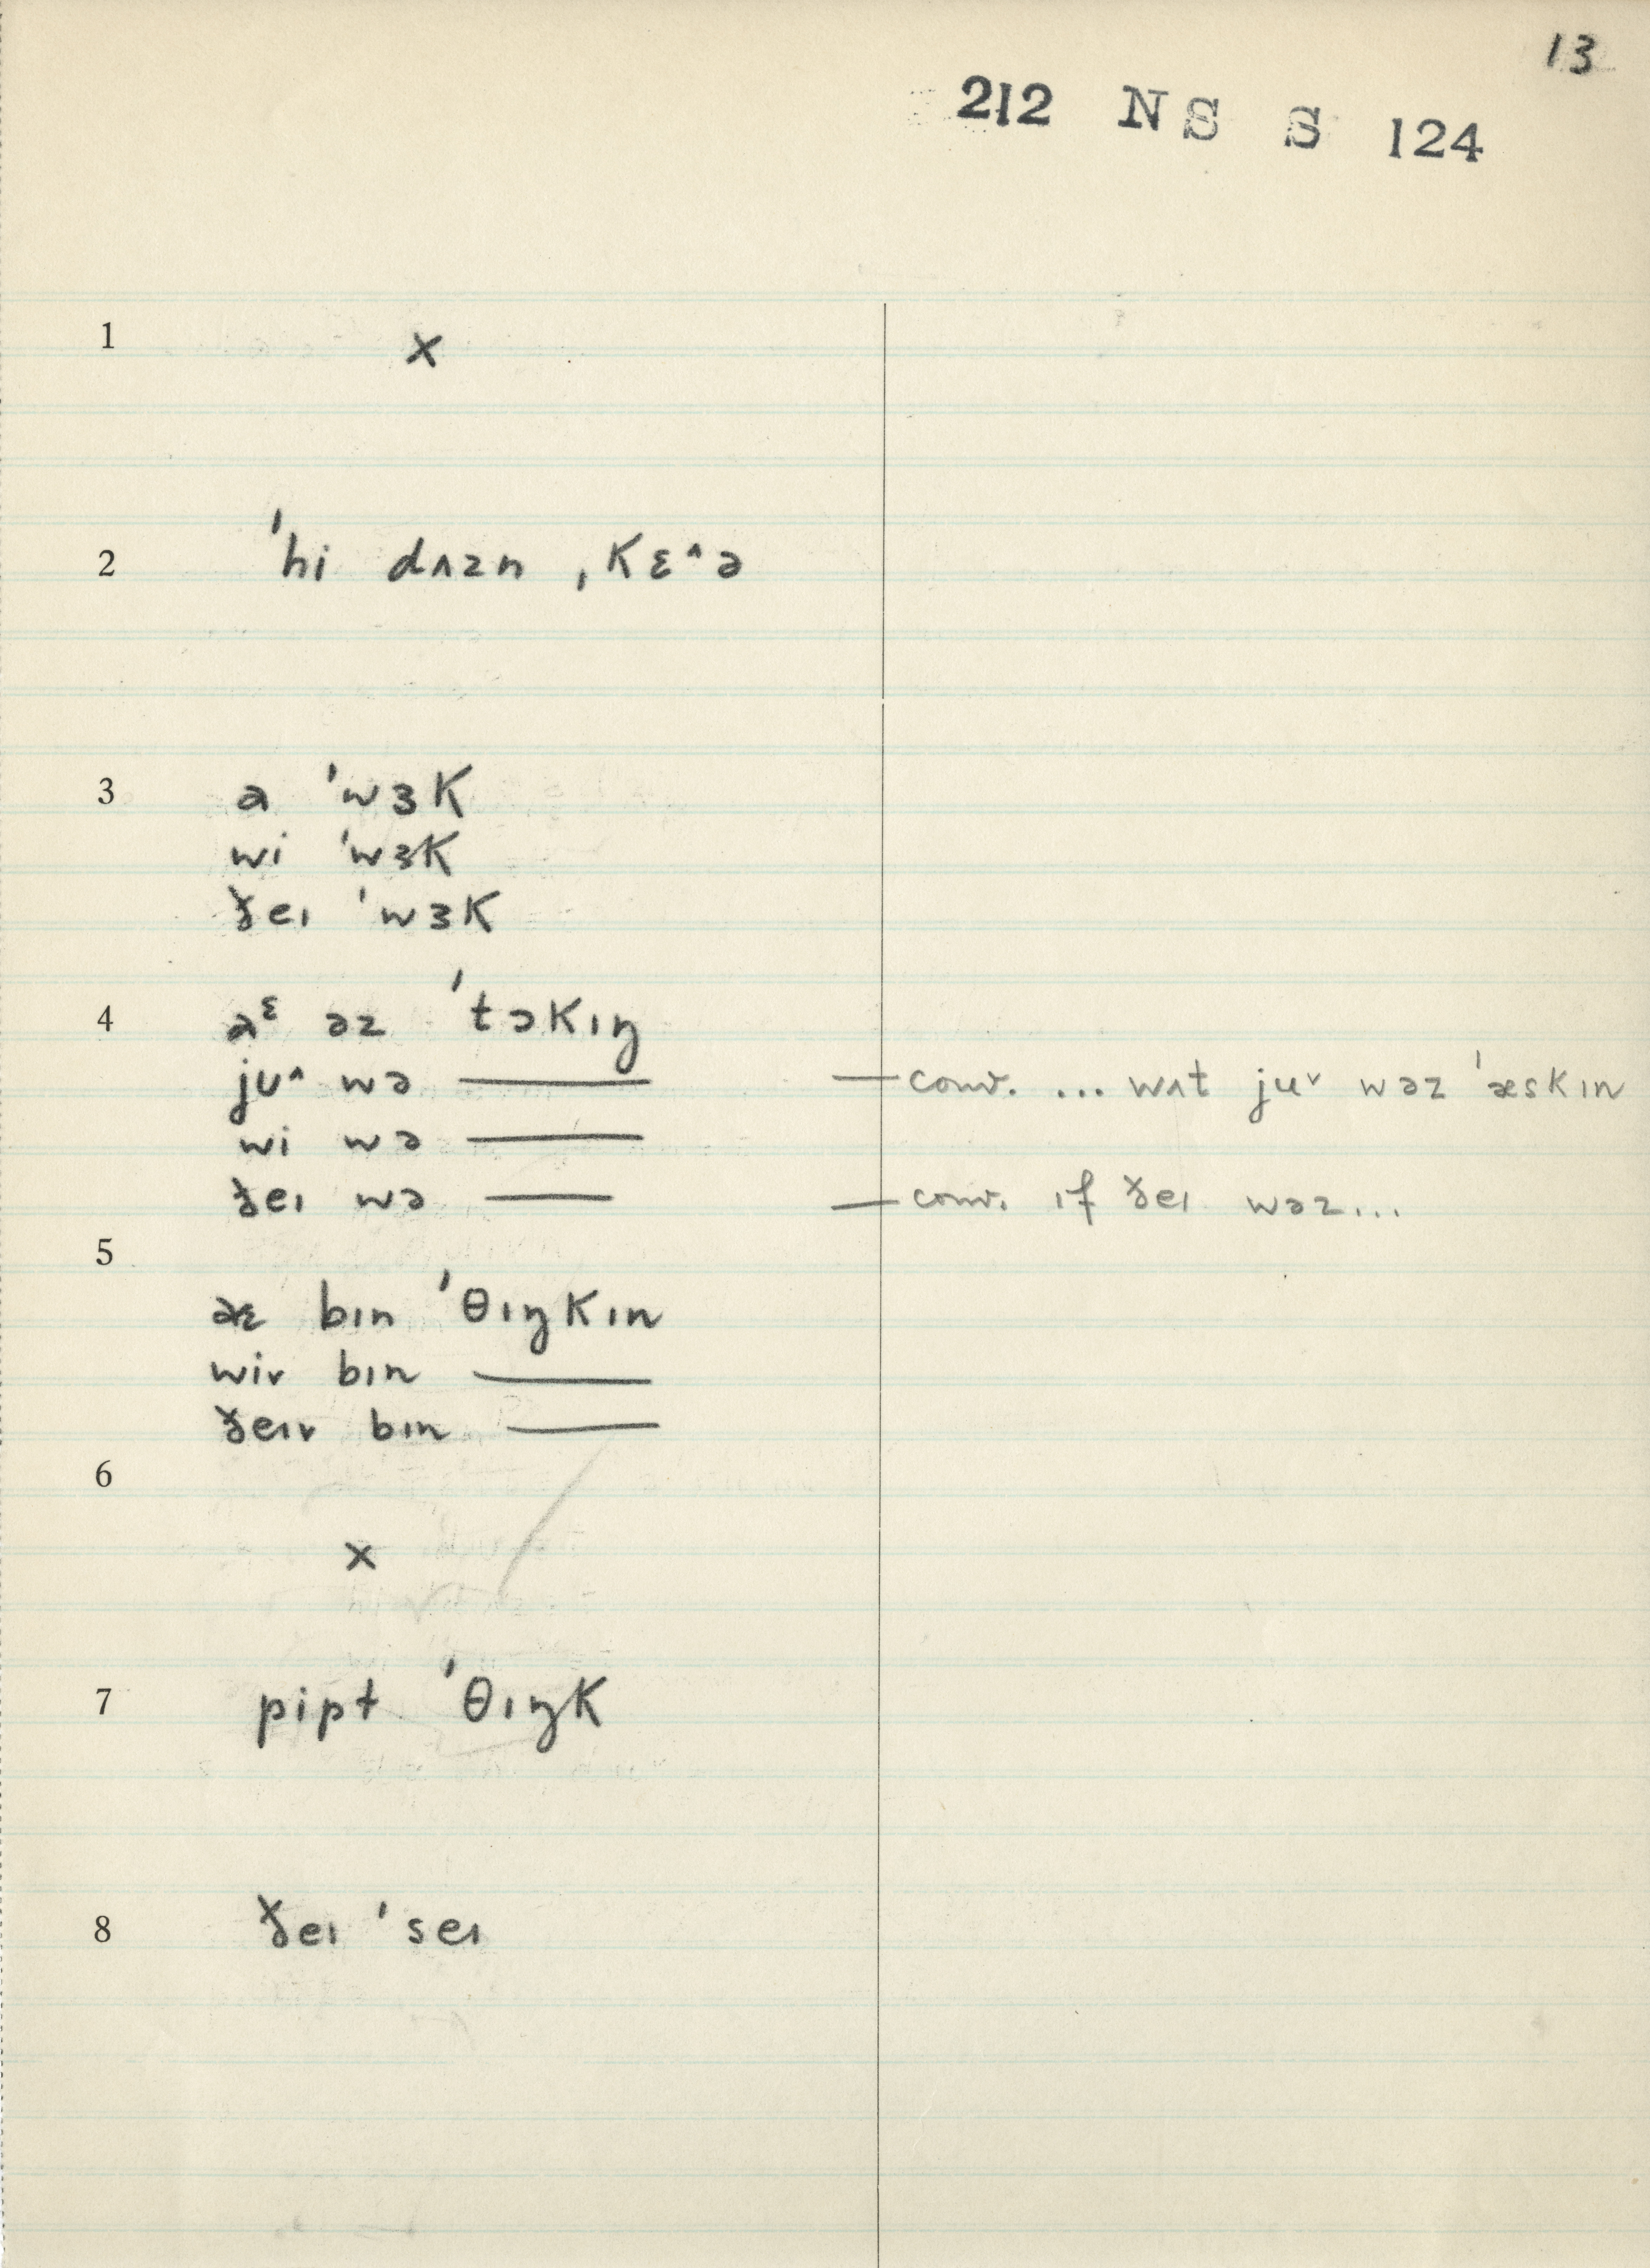 13
212 NS S 124
1 x
2 ˈhi dʌzn ˌkɛ^ə
3 a ˈwɜk
wi ˈwɜk
ðeɪ ˈwɜk
4 aᵋ əz ˈtɔkɪŋ
jʊ^ wə —— — conv. ... wʌt ju˅ wəz ˈæskɪn
wi wə ——
ðeɪ wə —— — conv. ɪf ðeɪ wəz...
5
aɛ bɪn ˈθɪŋkɪn
wiv bɪn ——
ðeɪv bɪn ——
6
x
7 pipt ˈθɪŋk
8 ðeɪ ˈseɪ